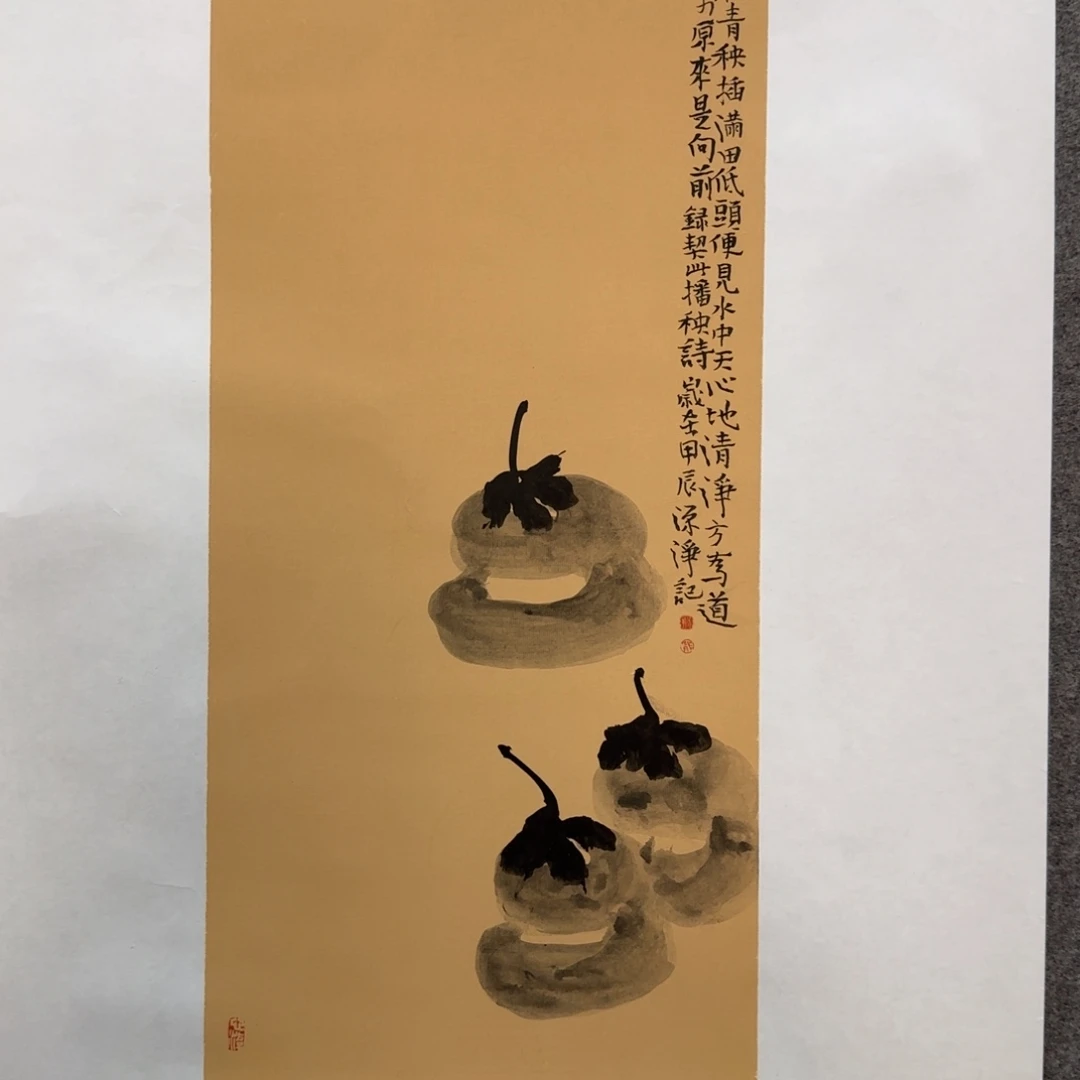 青秧插滿田低頭便見水中天心地清淨方為道
原來是向前錄契此播秧詩歲在甲辰源淨記